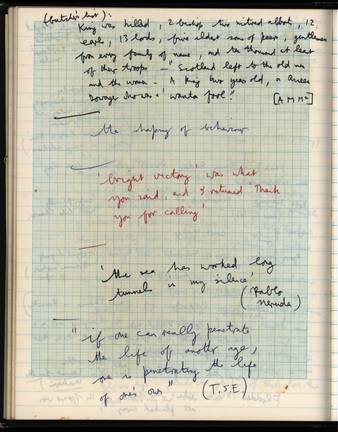 King was killed, 2 bishops two mitred abbots, 12
earls, 13 lords, five eldest sons of peers, gentlemen
from every family of name, and ten thousand at least
of their troops — "Scotland left to the old men
and the women - A King two years old, a Queen
was a 'wanton fool'."
the shaping of behaviour
'bright victory' was what
you said, and I returned 'Thank
you for calling'
'the sea has worked long
tunnels in my silence'
(Pablo
Neruda)
"if one can really penetrate
the life of another age,
one is penetrating the life
of one's own" (T.S.E.)